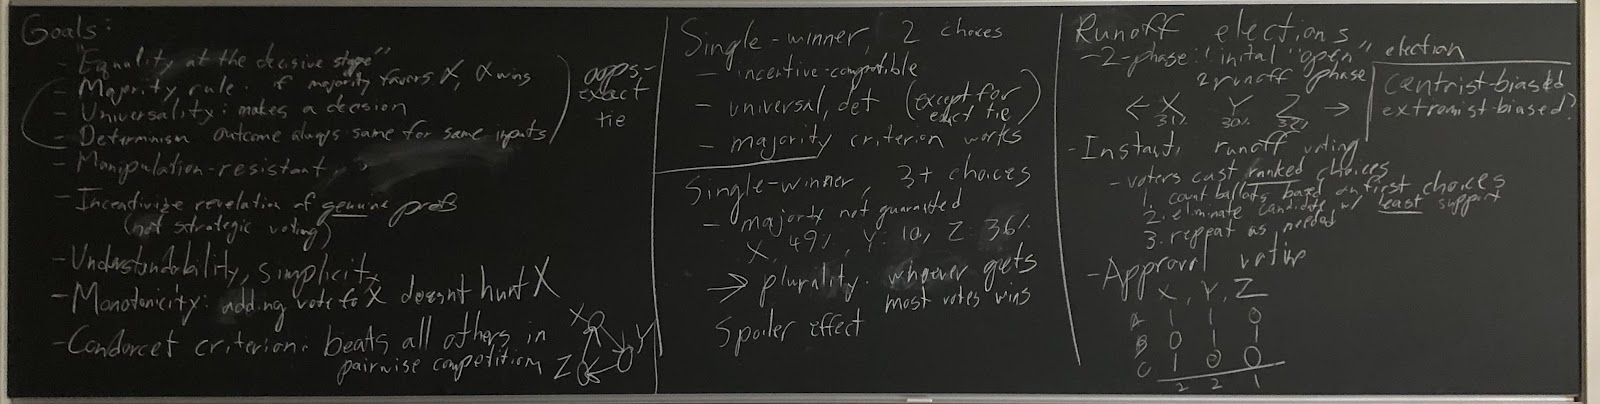 Goals:
- "Equality at the decisive stage"
- Majority rule. if majority favors X, X wins
- Universality: makes a decision
- Determinism outcome always same for same inputs
oops-
exact
tie
- Manipulation-resistant
- Incentivize revelation of genuine prefs
(not strategic voting)
- Understandability, simplicity
- Monotonicity: adding vote to X doesnt hurt X
- Condorcet criterion. beats all others in
pairwise competition
X
Y
Z
Single-winner, 2 choices
- incentive-compatible
- universal, det (except for
exact tie)
- majority criterion works
Single-winner, 3+ choices
- majority not guaranteed
X, 49%, Y: 10, Z: 36%
→ plurality. whoever gets
most votes wins
Spoiler effect
Runoff elections
- 2-phase: 1 initial "open" election
2 runoff phase
← X Y Z →
31% 30% 32%
centrist-biased
extremist-biased?
- Instant, runoff voting
- voters cast ranked choices
1. count ballots based on first choices
2. eliminate candidate w/ least support
3. repeat as needed
- Approval voting
X, Y, Z
A 1 1 0
B 0 1 1
C 1 0 0
2 2 1